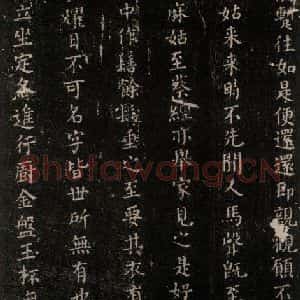 蹔往如是便還還即親觀願不
姑来来時不先聞人馬聲既至
麻姑至蔡經亦舉家見之是好
中作髻餘髮垂之至要其衣有
耀日不可名字皆世所無有也
立坐定各進行廚金盤玉杯
Shufawang.CN